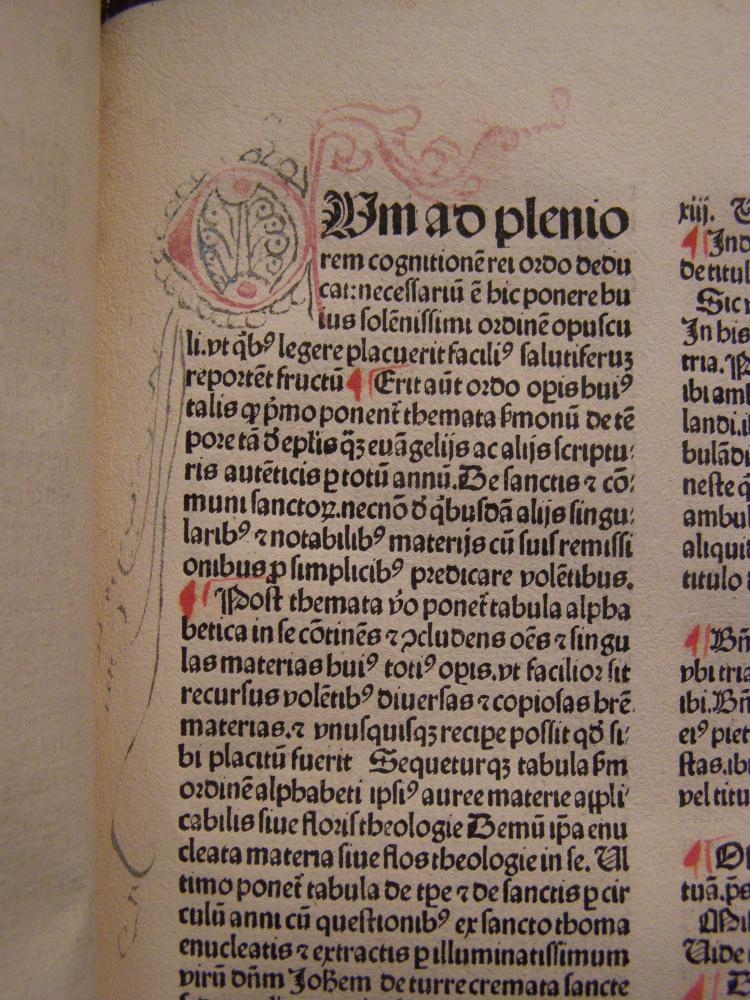 Wm ad plenio
rem cognitionē rei ordo dedu
cat: necessariū ē hic ponere hu
ius solēnissimi ordinē opuscu
li. vt q̇bꝰ legere placuerit faciliꝰ salutiferuꝫ
reportēt fructū ¶ Erit aūt ordo opis huiꝰ
talis ꝙ pͥmo ponent̄ themata s̄monū de tē
pore tā d̄ eplis qꝫ euāgelijs ac alijs scriptu:
ris autēticis ꝑ totū annū. De sanctis ⁊ cō:
muni sanctoꝝ. necnō d̄ q̇busdā alijs singu:
laribꝰ ⁊ notabilibꝰ materijs cū suis remissi
onibus ꝓ simplicibꝰ predicare volētibus.
¶ Post themata v̊o ponet̄ tabula alpha
betica in se cōtinēs ⁊ ꝯcludens oēs ⁊ singu
las materias huiꝰ totiꝰ opis. vt facilior sit
recursus volētibꝰ diuersas ⁊ copiosas brē
materias. ⁊ vnusquisqꝫ recipe possit qd̄ si:
bi placitū fuerit Sequeturqꝫ tabula s̄m
ordinē alphabeti ipsiꝰ auree materie appli
cabilis siue floris theologie Demū ip̄a enu
cleata materia siue flos theologie in se. Ul
timo ponet̄ tabula de tp̄e ⁊ de sanctis ꝑ cir
culū anni cū questionibꝰ ex sancto thoma
enucleatis ⁊ extractis ꝑ illuminatissimum
virū dn̄m Johēm de turre cremata sancte
xiij.
¶ Ind
de titul
Sic v
In his
tria.
ibi amb
landi. i
bulādi
neste q
ambul
aliquit
titulo
¶ Bn̄
vbi tria
ibi. Bn̄
eiꝰ piet
stas. ibi
vel titu
tuā. p̄s
Uide